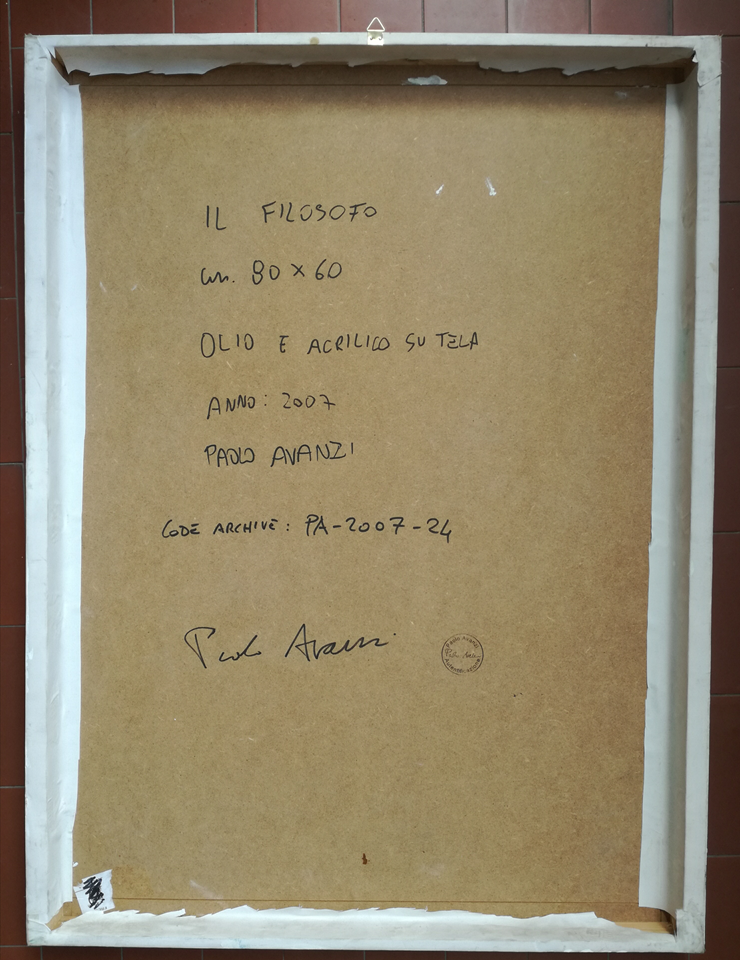 IL FILOSOFO
cm. 80 X 60
OLIO E ACRILICO SU TELA
ANNO: 2007
PAOLO AVANZI
CODE ARCHIVE: PA-2007-24
Paolo Avanzi
Paolo Avanzi